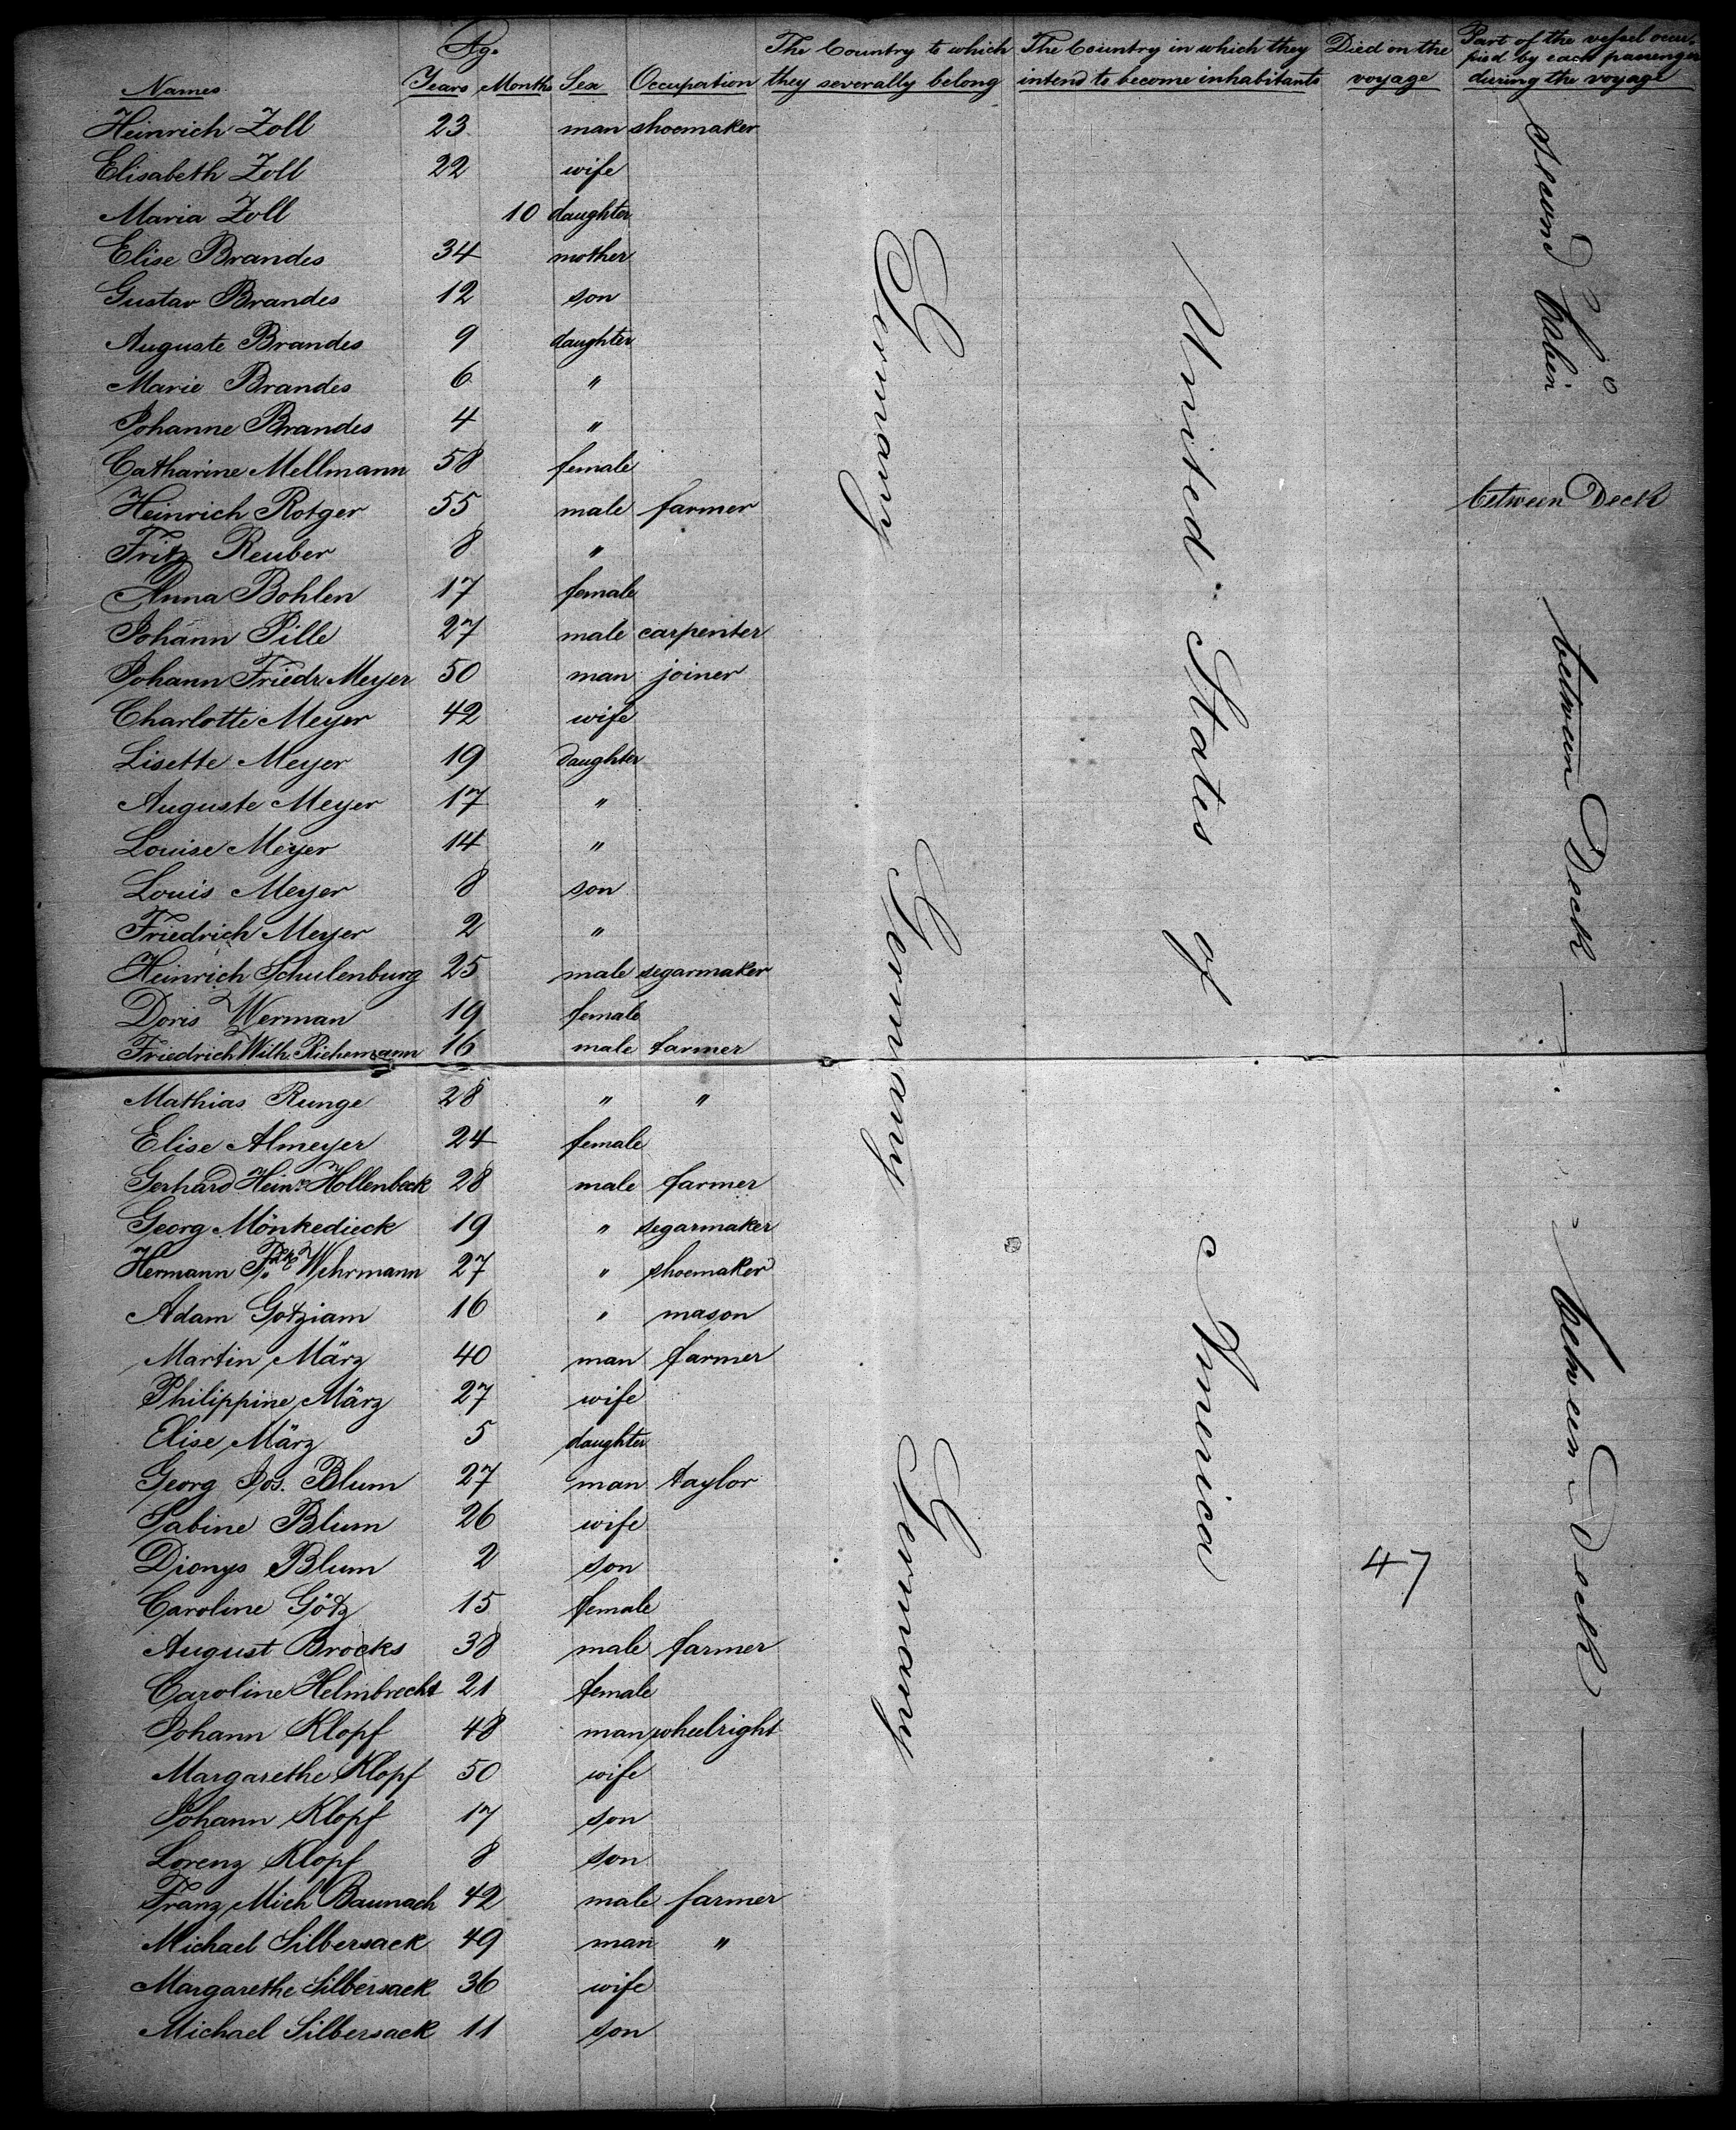 Names Age Years Months Sex Occupation The Country to which they severally belong The Country in which they intend to become inhabitants Died on the voyage Part of the vessel occupied by each passenger during the voyage
Heinrich Zoll 23 man shoemaker
Elisabeth Zoll 22 wife
Maria Zoll 10 daughter
Elise Brandes 34 mother
Gustav Brandes 12 son
Auguste Brandes 9 daughter
Marie Brandes 6 "
Johanne Brandes 4 "
Catharine Mellmann 58 female
Heinrich Rotger 55 male farmer between Deck
Fritz Reuber 8 "
Anna Bohlen 17 female
Johann Pille 27 male carpenter
Johann Friedr Meyer 50 man joiner
Charlotte Meyer 42 wife
Lisette Meyer 19 daughter
Auguste Meyer 17 "
Louise Meyer 14 "
Louis Meyer 8 son
Friedrich Meyer 2 "
Heinrich Schulenburg 25 male segarmaker
Doris Werman 19 female
Friedrich Wilh. Richemann 16 male farmer
Mathias Runge 28 " "
Elise Almeyer 24 female
Gerhard Heinr. Hollenbeck 28 male farmer
Georg Mönkedieck 19 " segarmaker
Hermann Wehrmann 27 " shoemaker
Adam Gotziam 16 " mason
Martin März 40 man farmer
Philippine März 27 wife
Elise März 5 daughter
Georg Jos. Blum 27 man taylor
Sabine Blum 26 wife
Dionys Blum 2 son
Caroline Götz 15 female
August Brocks 38 male farmer
Caroline Helmbrecht 21 female
Johann Klopf 48 man wheelright
Margarethe Klopf 50 wife
Johann Klopf 17 son
Lorenz Klopf 8 son
Franz Mich Baunach 42 male farmer
Michael Silbersack 49 man "
Margarethe Silbersack 36 wife
Michael Silbersack 11 son
Germany
Germany
Germany
United States of America
47
Second Cabin
between Deck
between Deck